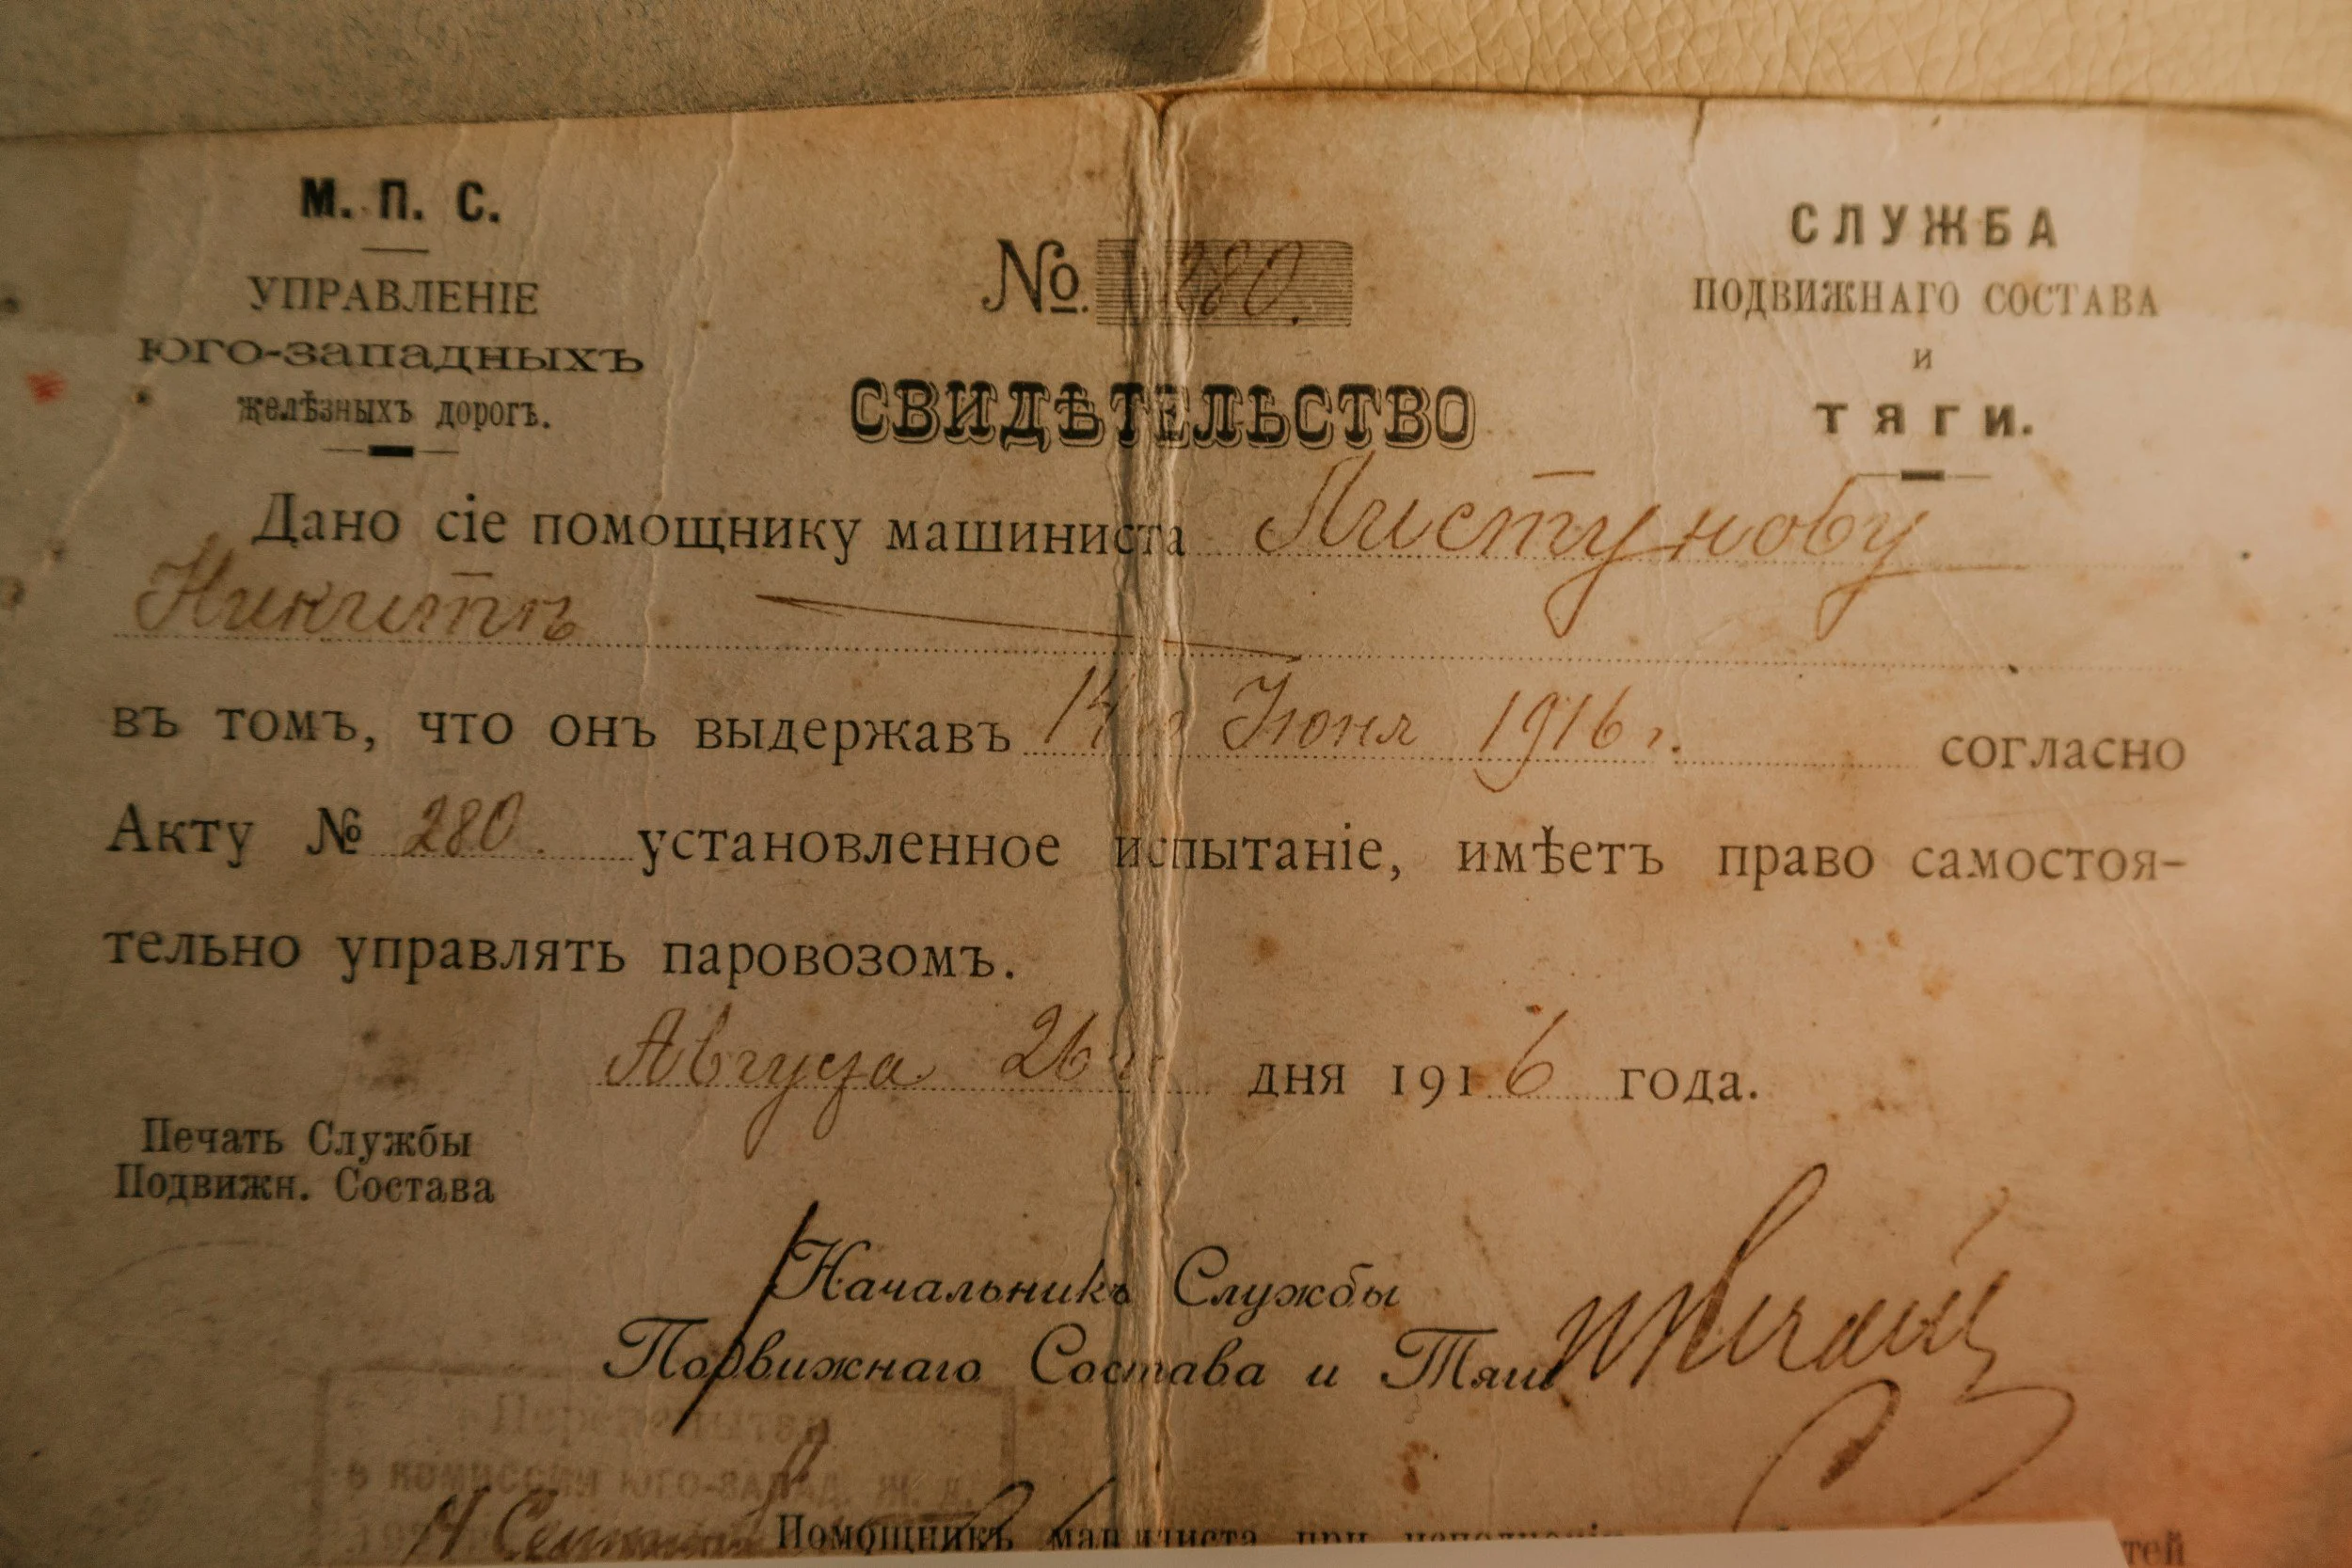 М. П. С.
УПРАВЛЕНІЕ
ЮГО-ЗАПАДНЫХЪ
желѣзныхъ дорогъ.
№. 280.
СЛУЖБА
ПОДВИЖНАГО СОСТАВА
И
ТЯГИ.
СВИДѢТЕЛЬСТВО
Дано сіе помощнику машиниста Листунову
Никитѣ
въ томъ, что онъ выдержавъ 14 Іюня 1916 г. согласно
Акту № 280. установленное испытаніе, имѣетъ право самостоя-
тельно управлять паровозомъ.
Августа 26 дня 1916 года.
Печать Службы
Подвижн. Состава
Начальникъ Службы
Подвижнаго Состава и Тяги
в комиссии ЮГО-ЗАПАД. Ж. Д.
Помощникъ машиниста при